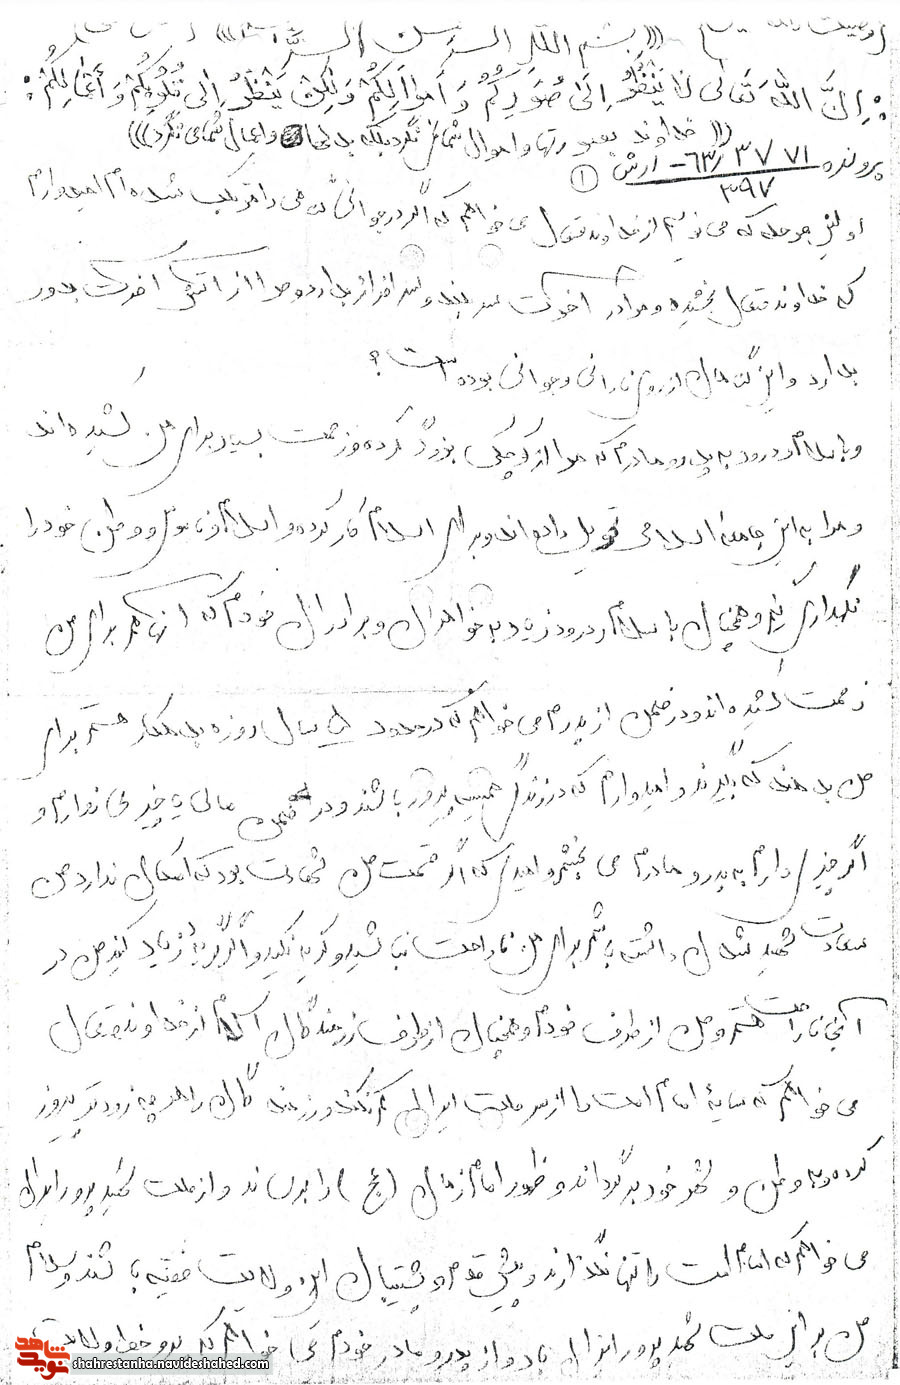 ((بسم الله الرحمن الرحیم))
:اِنَّ اللّهَ تَعالی لا یَنْظُرُ اِلی صُوَرِکُمْ وَ اَموالِکُمْ وَلکِنْ یَنْظُرُ اِلی قُلُوبِکُمْ وَ اَعْمالِکُمْ:
((خداوند بصورتها و اموال شما نمی نگرد بلکه بدلها و اعمال شما می نگرد))
پرونده ۳۷۷۱ ۶۳ - ارتش ۱
۳۹۷
اولین جمله که می نویسم از خداوند متعال می خواهم که اگر در جوانی گناهی را مرتکب شده ام امیدوارم
که خداوند متعال بخشیده و مرا در آخرت سربلند و سرافراز بدارد و مرا از آتش آخرت بدور
بدارد و این گناهان از روی نادانی و جوانی بوده است؟
و با سلام و درود به پدر و مادرم که مرا از کوچکی بزرگ کرده و زحمت بسیار برای من کشیده اند
و مرا به این جامعه اسلامی تحویل داده اند و برای اسلام کار کرده و اسلام و ناموس و وطن خود را
نگهداری کنم و همچنان با سلام و درود زیاد به خواهران و برادران خودم که آنها هم برای من
زحمت کشیده اند و در ضمن از پدرم می خواهم که در حدود ۵ سال روزه بدهکار هستم برای
من بدهند که بگیرند و امیدوارم که در زندگی همیشه پیروز باشند و در ضمن مالی یا چیزی ندارم و
اگر چیزی دارم به پدر و مادرم می بخشم و امیدی که اگر قسمت من شهادت بود که امکان ندارد من
سعادت شهید شدن داشته باشم برای من ناراحت نباشید و گریه نکنید و اگر گریه زیاد کنید من در
آنجا ناراحت هستم و من از طرف خودم و همچنان از طرف رزمندگان اسلام از خداوند متعال
می خواهم که سایه امام امت را از سر ملت ایران کم نکند و رزمندگان را هر چه زودتر پیروز
کرده و به وطن و شهر خود برگرداند و ظهور امام زمان (عج) را برساند و از ملت شهید پرور ایران
می خواهم که امام امت را تنها نگذارند و پیش قدم و پشتیبان این ولایت فقیه باشند و سلام
من بر این ملت شهید پرور ایران باد و از پدر و مادر خودم می خواهم که
نوید شاهد
shahrestanha.navideshahed.com